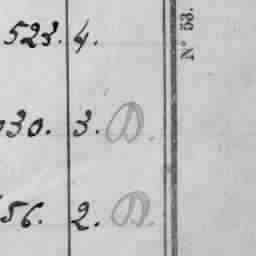 523. 4.
30. 3. D.
56. 2. D.
N° 53.